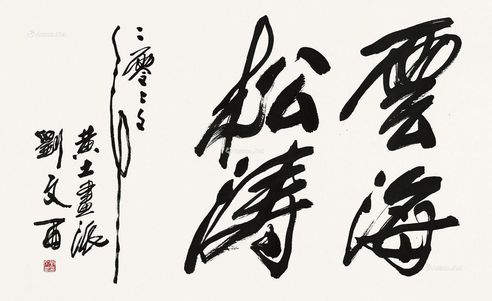 雲海
松濤
二零
黄土畫派
劉文西